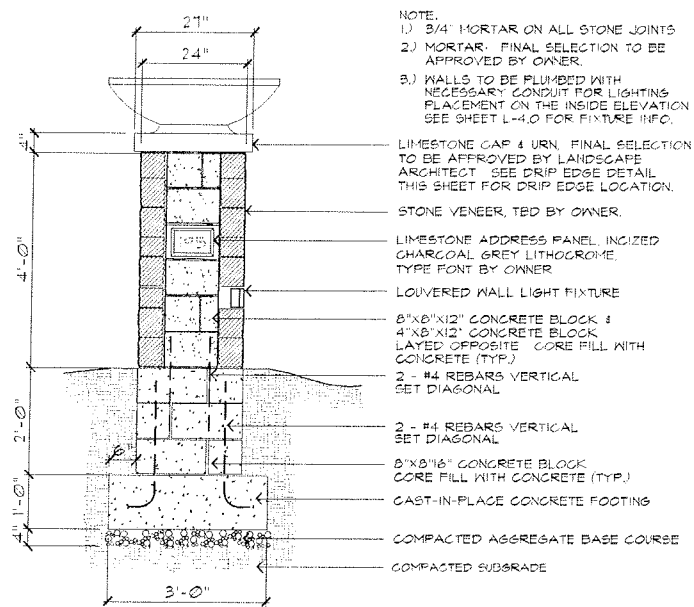 27"
24"
4"
4'-0"
2'-0"
6"
1'-0"
4"
3'-0"
NOTE.
1.) 3/4" MORTAR ON ALL STONE JOINTS
2.) MORTAR. FINAL SELECTION TO BE
APPROVED BY OWNER.
3.) WALLS TO BE PLUMBED WITH
NECESSARY CONDUIT FOR LIGHTING
PLACEMENT ON THE INSIDE ELEVATION
SEE SHEET L-4.0 FOR FIXTURE INFO.
LIMESTONE CAP & URN, FINAL SELECTION
TO BE APPROVED BY LANDSCAPE
ARCHITECT SEE DRIP EDGE DETAIL
THIS SHEET FOR DRIP EDGE LOCATION.
STONE VENEER, TBD BY OWNER.
LIMESTONE ADDRESS PANEL, INCIZED
CHARCOAL GREY LITHOCROME,
TYPE FONT BY OWNER
LOUVERED WALL LIGHT FIXTURE
8"X8"X12" CONCRETE BLOCK &
4"X8"X12" CONCRETE BLOCK
LAYED OPPOSITE CORE FILL WITH
CONCRETE (TYP.)
2 - #4 REBARS VERTICAL
SET DIAGONAL
2 - #4 REBARS VERTICAL
SET DIAGONAL
8"X8"16" CONCRETE BLOCK
CORE FILL WITH CONCRETE (TYP.)
CAST-IN-PLACE CONCRETE FOOTING
COMPACTED AGGREGATE BASE COURSE
COMPACTED SUBGRADE